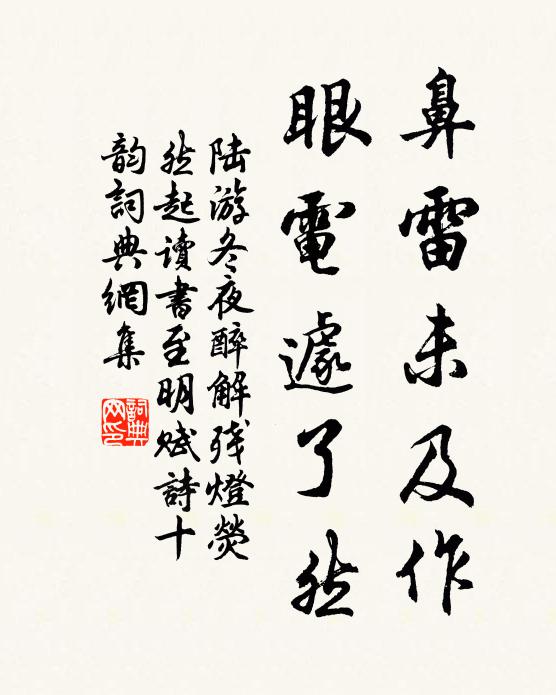 鼻雷未及作
眼電遽了然
陆游冬夜醉解残燈熒
然起讀書至明赋詩十
韵詞典網集
詞典网印